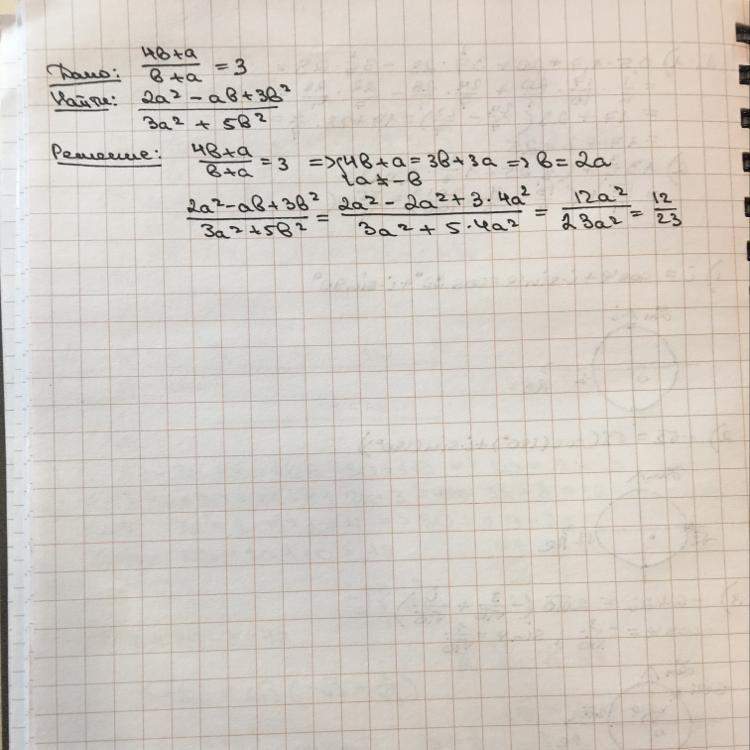 Дано: (4b+a)/(b+a) = 3
Найти: (2a² - ab + 3b²)/(3a² + 5b²)
Решение: (4b+a)/(b+a) = 3 => { 4b+a = 3b+3a => b = 2a
a ≠ -b
(2a²-ab+3b²)/(3a²+5b²) = (2a² - 2a² + 3·4a²)/(3a² + 5·4a²) = 12a²/23a² = 12/23